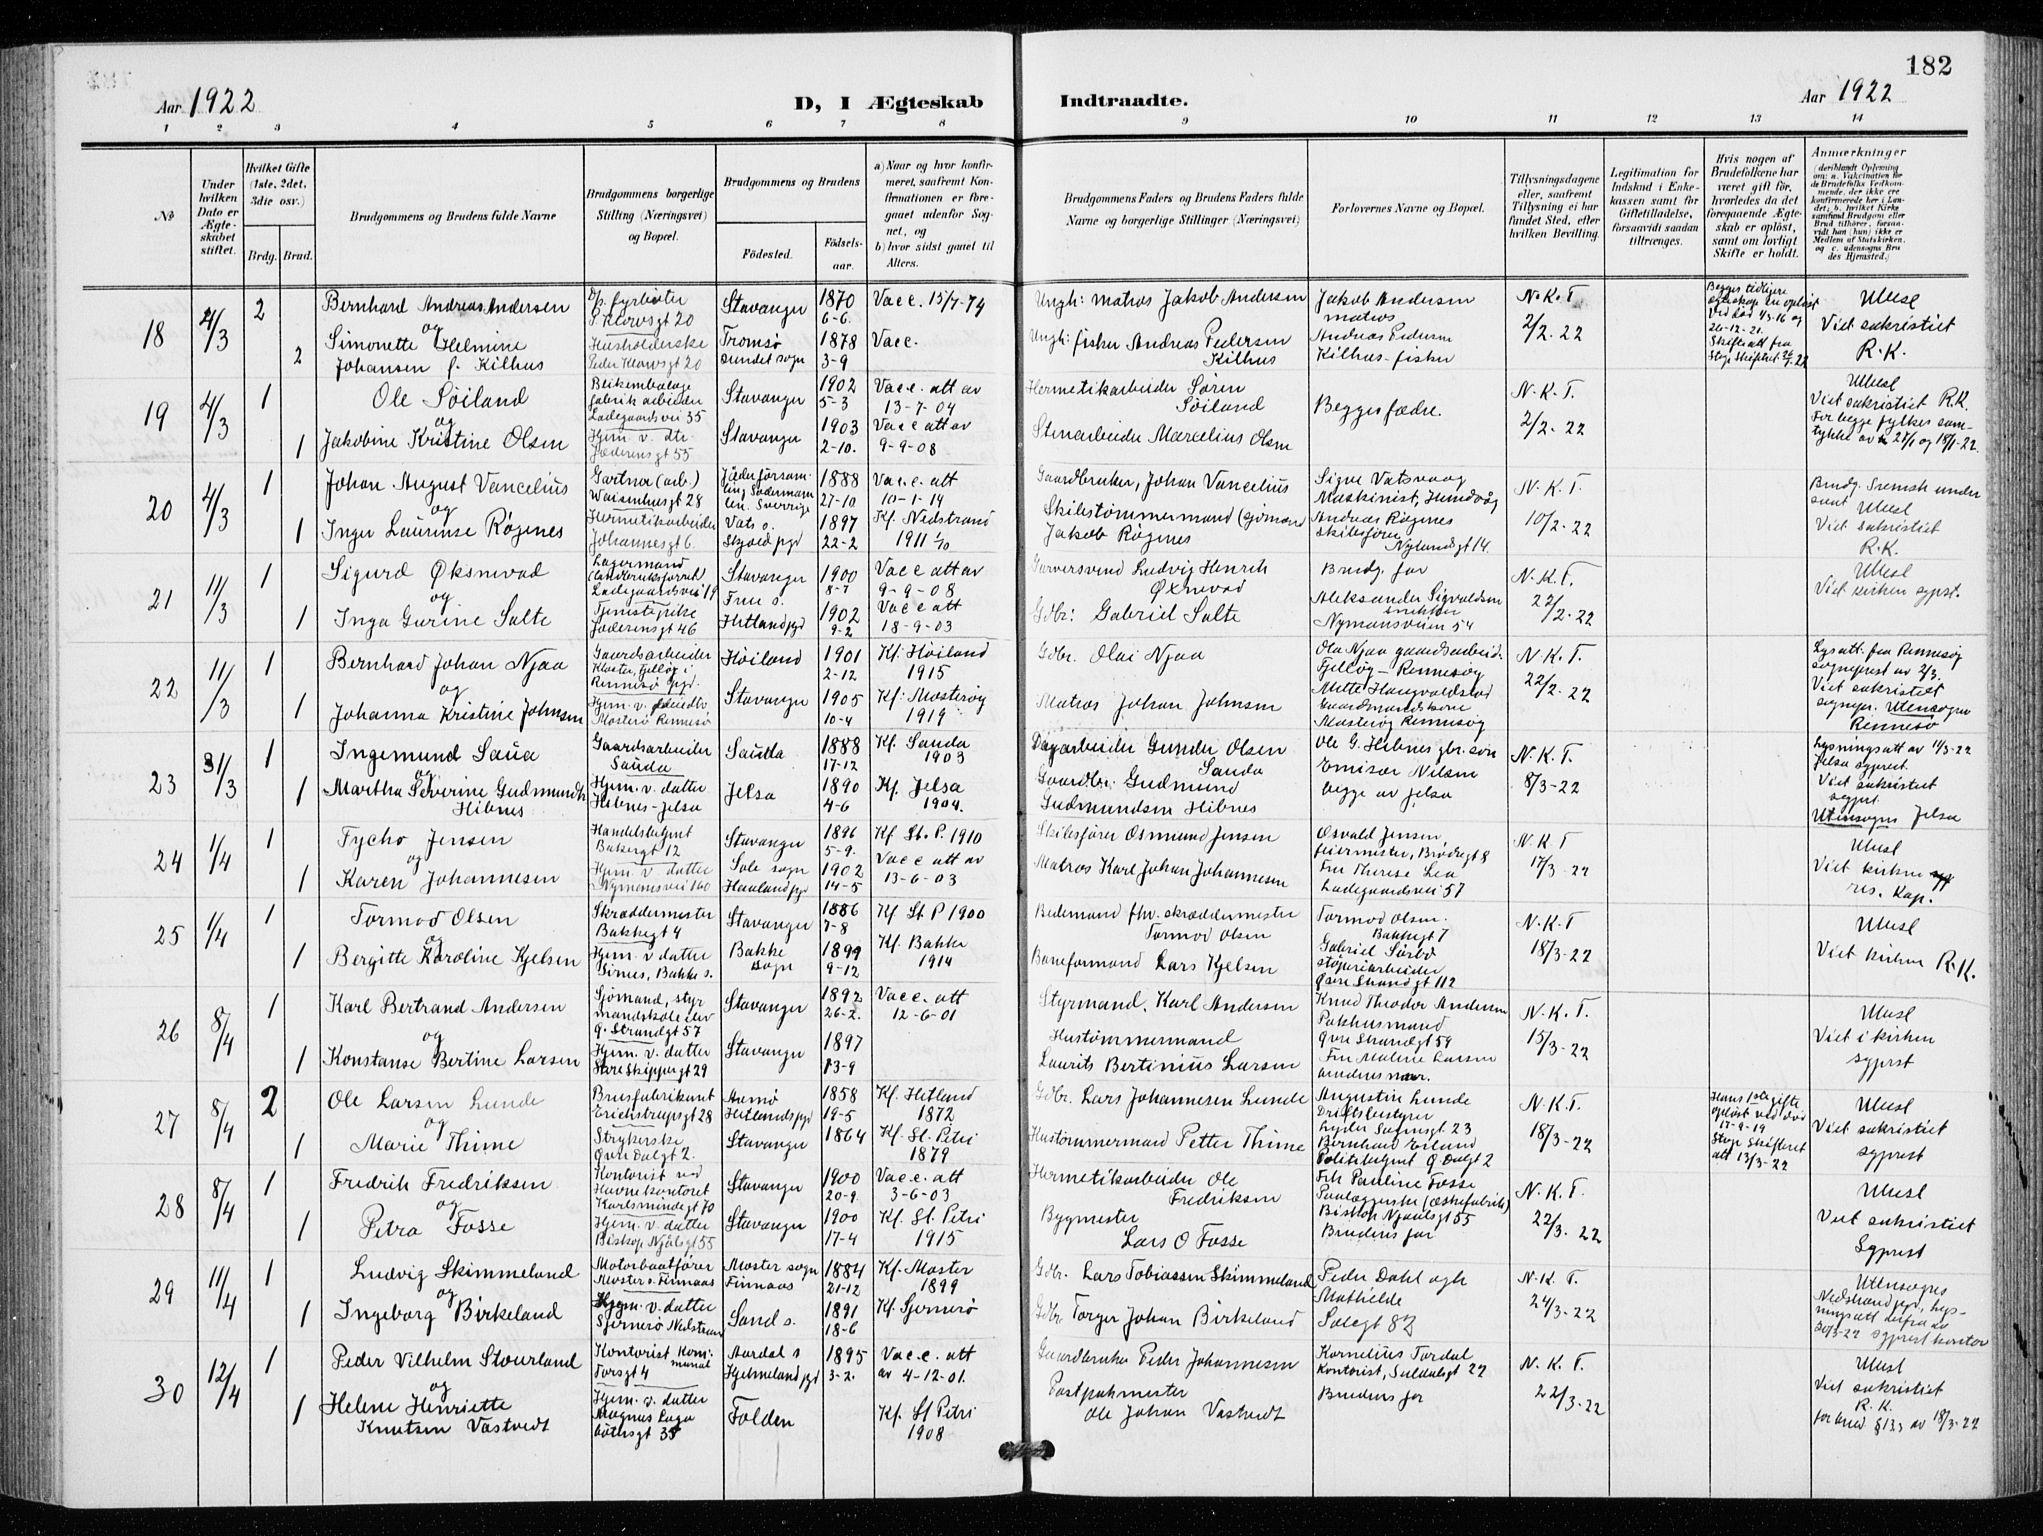 182
Aar 1922
D, I Ægteskab
Indtraadte.
Aar 1922
1 2 3 4 5 6 7 8 9 10 11 12 13 14
No
Under hvilken Dato er Ægteskabet stiftet.
Hvilket Gifte (1ste, 2det, 3die osv.)
Brdg. Brud.
Brudgommens og Brudens fulde Navne
Brudgommens borgerlige Stilling (Næringsvei) og Bopæl.
Brudgommens og Brudens
Fødested.
Fødselsaar.
a) Naar og hvor konfirmeret, saafremt Konfirmationen er foregaaet udenfor Sognet, og
b) hvor sidst gaaet til Alters.
Brudgommens Faders og Brudens Faders fulde Navne og borgerlige Stillinger (Næringsvei)
Forlovernes Navne og Bopæl.
Tillysningsdagene eller, saafremt Tillysning ei har fundet Sted, efter hvilken Bevilling.
Legitimation for Indskud i Enkekassen samt for Giftetilladelse, forsaavidt saadan tiltrænges.
Hvis nogen af Brudefolkene har været gift før, hvorledes da det foregaaende Ægteskab er opløst, samt om lovligt Skifte er holdt.
Anmærkninger
18 4/3 2 Bernhard Andreas Andersen
D/p. fyrbøter P. Klowsgt 20
Stavanger 1870 6-6. Vacc. 15/7-74
Ungk: matros Jakob Andersen
Jakob Andersen matros
N.K.T. 2/2-22
Ubesl Viet sakristiet R.K.
og
2 Simonette Helmine Johansen f. Kilhus
Husholderske Peder Klowsgt 20
Tromsøsundet sogn 1878 3-9 Vacc.
Ungk: fisker Andreas Pedersen Kilhus
Andreas Pedersen Kilhus - fisker
19 4/3 1 Ole Søiland
Blikemballage fabrik arbeider Ladegaardsvei 35
Stavanger 1902 5-3 Vacc. att av 13-7-04
Hermetikarbeider Søren Søiland
Begges fædre.
N.K.T. 2/2-22
Ubesl Viet sakristiet R.K. For begge fylkes samtykke av 27/1 og 18/1-22.
og
1 Jakobine Kristine Olsen
Hjem. v. dtr. Jæderensgt 55
Stavanger 1903 2-10. Vacc att av 9-9-08
Stenarbeider Marcelius Olsen
20 4/3 1 Johan August Vancelius
Gartner (arb.) Waisenhusgt 28
1888 27-10 Vacc. att 10-1-14
Gaardbruker, Johan Vancelius
Sigve Vatsvaag Maskinist, Hundvåg
N.K.T. 10/2-22
Brudg. Svensk undersaat Ubesl Viet sakristiet R.K.
og
1 Inger Laurense Røgenes
Hermetikarbeider Johannesgt 6.
Vats s. Skjold pgd 1897 22-2 Kf. Nedstrand 1911 1/10
Skibstømmermand (sjømand) Jakob Røgenes
Andreas Røgenes skibsfører Nylandsgt 14.
21 11/3 1 Sigurd Øksnevad
Lagermand Ladegaardsvei 19
Stavanger 1900 8-7 Vacc att av 9-9-08
Garversvend Ludvig Henrik Øxnevad
Brudg. far
N.K.T. 22/2-22
Ubesl Viet kirken sgprst.
og
1 Inga Gurine Salte
Tjenestepike Jæderensgt 46
Frue s. Hetland pgd 1902 9-2 Vacc att 18-9-03
Gdbr: Gabriel Salte
Aleksander Sigvaldsen snikker Nymansveien 54
22 11/3 1 Bernhard Johan Njaa
Gaardsarbeider Kloster, Fjelløg i Rennesø pgd.
Høiland 1901 2-12 Kf. Høiland 1915
Gdbr. Olai Njaa
Ola Njaa gaardsarbeid. Fjelløg - Rennesøg
N.K.T. 22/2-22
Lysatt. fra Rennesøg sogneprest av 2/3. Viet sakristiet sognepr. Utensogns Rennesø
og
1 Johanna Kristine Johnsen
Hjem. v. Mosterø Rennesø
Stavanger 1905 10-4 Kf. Mosterøg 1919
Matros Johan Johnsen
Mette Haugvaldstad Gaardmandskone Mosterøg Rennesøg
23 31/3 1 Ingemund Sauda
Gaardsarbeider Sauda
Sauda 1888 17-12 Kf. Sauda 1903
Dagarbeider Gunder Olsen Sauda
Ole G. Hibnes gbr. søn
N.K.T. 8/3-22
Lysningsatt av 11/3-22 Jelsa sgprest. Viet sakristiet sgprst. Utensogns Jelsa
og
1 Martha Severine Gudmundh. Hibnes
Hjem. v. datter Hibnes - Jelsa
Jelsa 1890 4-6 Kf. Jelsa 1904.
Gaardbr. Gudmund Gudmundsen Hibnes
Emisær Nilsen begge av Jelsa
24 1/4 1 Tycho Jensen
Handelsbetjent Bakergt 12
Stavanger 1896 5-9. Kf St. P. 1910
Skibsfører Osmund Jensen
Osvald Jensen feiermester, Brødregt 8
N.K.T 17/3-22
Ubesl Viet kirken res. kap.
og
1 Karen Johannesen
Hjem. v. datter Nymansvei 160
Sole sogn Haaland pgd 1902 14-5 Vacc att av 13-6-03
Matros Karl Johan Johannesen
Fru Therese Lea Ladegaardsvei 57
25 1/4 1 Tormod Olsen
Skræddermester Bakkegt 4
Stavanger 1886 7-8 Kf St P 1900
Bedemand fhv. skræddermester Tormod Olsen
Tormod Olsen. Bakkegt 7
N.K.T 18/3-22
Ubesl Viet kirken R.K.
og
1 Bergitte Karoline Kjelsen
Hjem. v datter Sirnes, Bakke s.
Bakke sogn 1899 9-12 Kf. Bakke 1914
Baneformand Lars Kjelsen
Gabriel Sørbø støperiarbeider Øvre Strandgt 112
26 8/4 1 Karl Bertrand Andersen
Sjømand, styrmandskole elev Ø. Strandgt 57
Stavanger 1892 26-2. Vacc. att 12-6-01
Styrmand, Karl Andersen
Knud Theodor Andersen Pakhusmand Øvre Strandgt 59
N.K.T. 15/3-22
Ubesl Viet i kirken sgprst
og
1 Konstanse Bertine Larsen
Hjem. v. datter Store Skippergt 29
Stavanger 1897 13-9
Hustømmermand Laurits Bertinius Larsen
Fru Malene Larsen brudens mor.
27 8/4 2 Ole Larsen Lunde
Brusfabrikant Erichstrupsgt 28
Aamø Hetlandspgd 1858 19-5 Kf. Hetland 1872
Gdbr. Lars Johannesen Lunde
Augustin Lunde Driftsbestyrer Lyder Sagensgt 23
N.K.T. 18/3-22
Hans 1ste gifte opløst ved død 17-9-19 Stgr. skifteret att 13/3-22
Ubesl Viet sakristiet sgprest
og
1 Marie Thime
Strykerske Øvre Dalgt 2.
Stavanger 1864 Kf. St. Petri 1879
Hustømmermand Petter Thime
Bernhard Erland Politibetjent Ø Dalgt 2
28 8/4 1 Fredrik Fredriksen
Kontorist ved Havnekontoret Karlsmindegt 70
Stavanger 1900 20-9. Vacc. att 3-6-03
Hermetikarbeider Ole Fredriksen
Frk Pauline Fosse Paalæggerske (æskefabrik) Biskop Njaalsgt 55
N.K.T. 22/3-22
Ubesl Viet sakristiet Sgprest
og
1 Petra Fosse
Hjem. v. datter Biskop Njålsgt 55
Stavanger 1900 17-4 Kf. St. Petri 1915
Bygmester Lars O Fosse
Brudens far
29 11/4 1 Ludvig Skimmeland
Motorbaatfører Moster s. Finnaas
Moster sogn Finnaas 1884 21-12 Kf. Moster 1899
Gdbr. Lars Tobiassen Skimmeland
Peder Dahl ogh Mathilde Solegt 82
N.K.T. 24/3-22
Utensogns Nedstrand pgd, lysningsatt derfra av 30/3-22 sgprest kontor
og
1 Ingeborg Birkeland
Hjem. v. datter Sjernerø Nedstrand
Sand s. 1891 18-6 Kf. Sjernerø
Gdbr Torger Johan Birkeland
30 12/4 1 Peder Vilhelm Stourland
Kontorist Kommunal Torsgt 4
Aardal s Hjelmeland pgd 1895 3-2. Vacc. att av 4-12-01.
Gaardbruker Peder Johannesen
Kornelius Tordal Kontorist, Suldalsgt 22
N.K.T. 22/3-22
Ubesl Viet sakristiet R.K. for brud §13,3 av 18/3-22
og
1 Helene Henriette Knutsen Vastvedt
Hjem. v. datter Magnus Lagabøtersgt 35
Folden Kf. St Petri 1908
Postpakmester Ole Johan Vastvedt
Brudens far